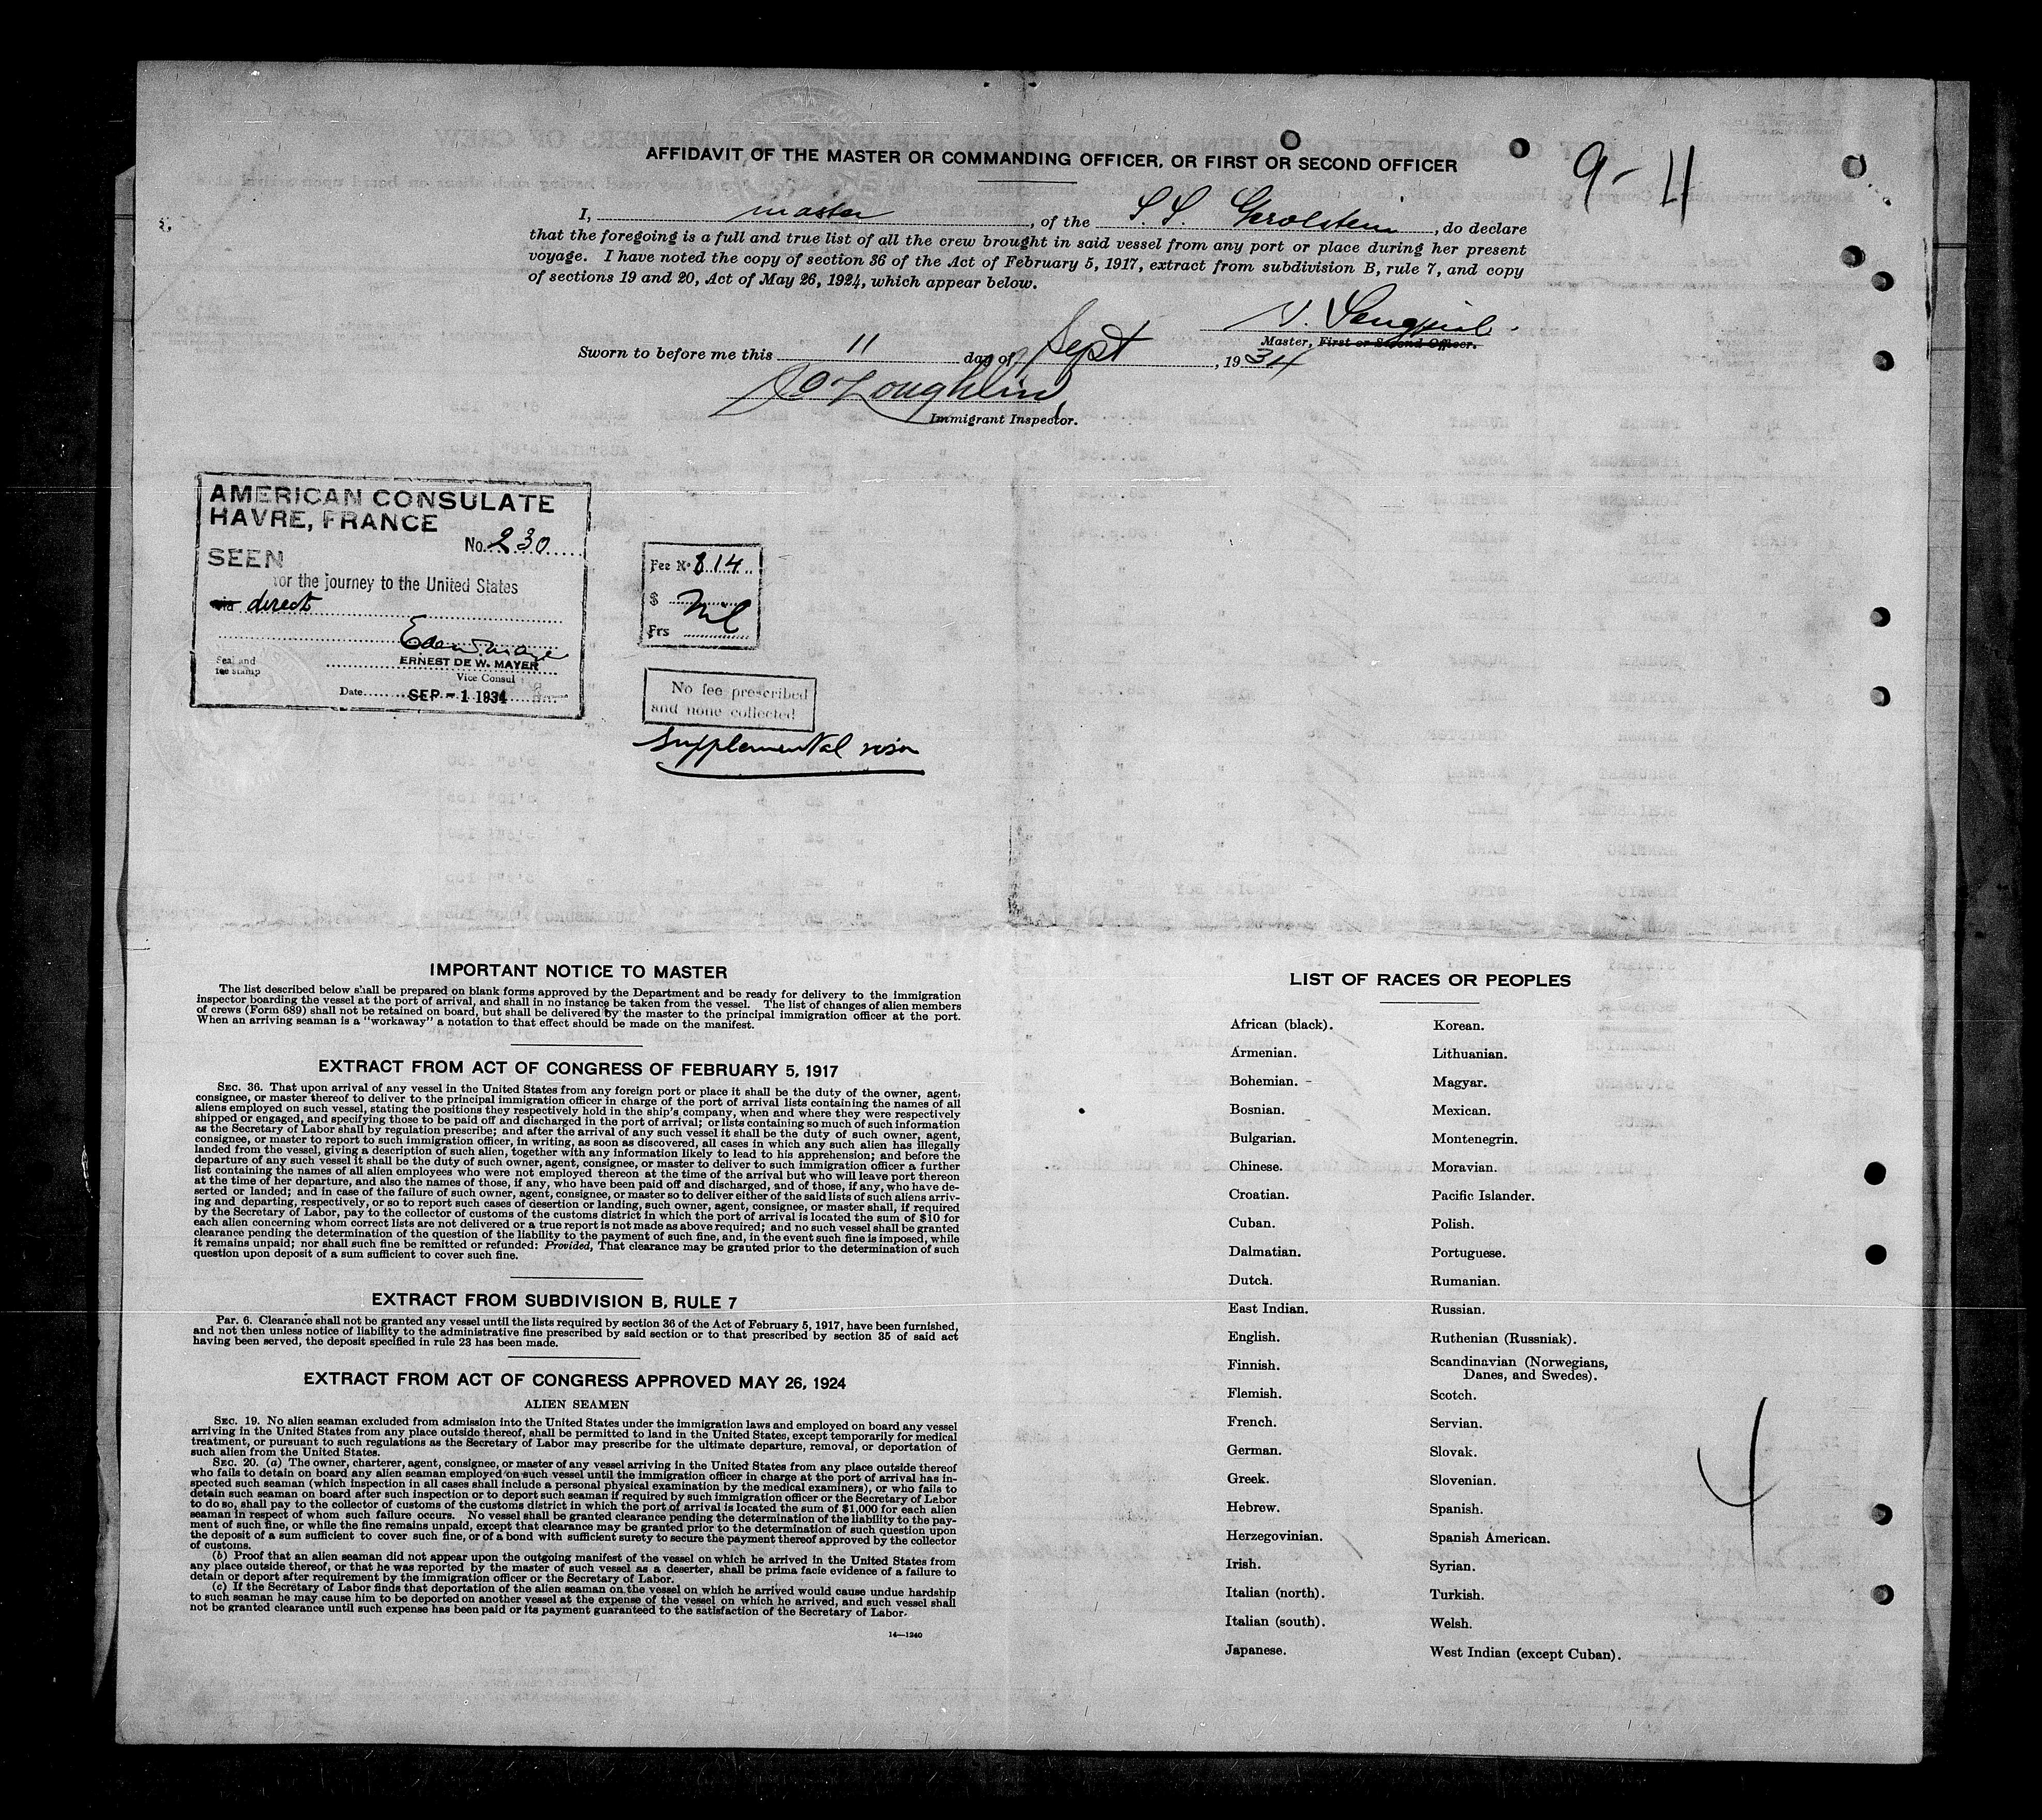 AFFIDAVIT OF THE MASTER OR COMMANDING OFFICER, OR FIRST OR SECOND OFFICER
9-11
I, master, of the S.S. Gerolstein, do declare
that the foregoing is a full and true list of all the crew brought in said vessel from any port or place during her present
voyage. I have noted the copy of section 36 of the Act of February 5, 1917, extract from subdivision B, rule 7, and copy
of sections 19 and 20, Act of May 26, 1924, which appear below.
Master, First or Second Officer.
Sworn to before me this 11 day of Sept, 1934
O'Loughlin
Immigrant Inspector.
AMERICAN CONSULATE
HAVRE, FRANCE
No. 230
SEEN
for the journey to the United States
via direct
ERNEST DE W. MAYER
Seal and
fee stamp
Vice Consul
Date SEP - 1 1934
Fee No 814
$ Nil
Frs
No fee prescribed
and none collected
Supplemental visa
IMPORTANT NOTICE TO MASTER
The list described below shall be prepared on blank forms approved by the Department and be ready for delivery to the immigration
inspector boarding the vessel at the port of arrival, and shall in no instance be taken from the vessel. The list of changes of alien members
of crews (Form 689) shall not be retained on board, but shall be delivered by the master to the principal immigration officer at the port.
When an arriving seaman is a "workaway" a notation to that effect should be made on the manifest.
EXTRACT FROM ACT OF CONGRESS OF FEBRUARY 5, 1917
SEC. 36. That upon arrival of any vessel in the United States from any foreign port or place it shall be the duty of the owner, agent,
consignee, or master thereof to deliver to the principal immigration officer in charge of the port of arrival lists containing the names of all
aliens employed on such vessel, stating the positions they respectively hold in the ship's company, when and where they were respectively
shipped or engaged, and specifying those to be paid off and discharged in the port of arrival; or lists containing so much of such information
as the Secretary of Labor shall by regulation prescribe; and after the arrival of any such vessel it shall be the duty of such owner, agent,
consignee, or master to report to such immigration officer, in writing, as soon as discovered, all cases in which any such alien has illegally
landed from the vessel, giving a description of such alien, together with any information likely to lead to his apprehension; and before the
departure of any such vessel it shall be the duty of such owner, agent, consignee, or master to deliver to such immigration officer a further
list containing the names of all alien employees who were not employed thereon at the time of the arrival but who will leave port thereon
at the time of her departure, and also the names of those, if any, who have been paid off and discharged, and of those, if any, who have de-
serted or landed; and in case of the failure of such owner, agent, consignee, or master so to deliver either of the said lists of such aliens arriv-
ing and departing, respectively, or so to report such cases of desertion or landing, such owner, agent, consignee, or master shall, if required
by the Secretary of Labor, pay to the collector of customs of the customs district in which the port of arrival is located the sum of $10 for
each alien concerning whom correct lists are not delivered or a true report is not made as above required; and no such vessel shall be granted
clearance pending the determination of the question of the liability to the payment of such fine, and, in the event such fine is imposed, while
it remains unpaid; nor shall such fine be remitted or refunded: Provided, That clearance may be granted prior to the determination of such
question upon deposit of a sum sufficient to cover such fine.
EXTRACT FROM SUBDIVISION B, RULE 7
PAR. 6. Clearance shall not be granted any vessel until the lists required by section 36 of the Act of February 5, 1917, have been furnished,
and not then unless notice of liability to the administrative fine prescribed by said section or to that prescribed by section 35 of said act
having been served, the deposit specified in rule 23 has been made.
EXTRACT FROM ACT OF CONGRESS APPROVED MAY 26, 1924
ALIEN SEAMEN
SEC. 19. No alien seaman excluded from admission into the United States under the immigration laws and employed on board any vessel
arriving in the United States from any place outside thereof, shall be permitted to land in the United States, except temporarily for medical
treatment, or pursuant to such regulations as the Secretary of Labor may prescribe for the ultimate departure, removal, or deportation of
such alien from the United States.
SEC. 20. (a) The owner, charterer, agent, consignee, or master of any vessel arriving in the United States from any place outside thereof
who fails to detain on board any alien seaman employed on such vessel until the immigration officer in charge at the port of arrival has in-
spected such seaman (which inspection in all cases shall include a personal physical examination by the medical examiners), or who fails to
detain such seaman on board after such inspection or to deport such seaman if required by such immigration officer or the Secretary of Labor
to do so, shall pay to the collector of customs of the customs district in which the port of arrival is located the sum of $1,000 for each alien
seaman in respect of whom such failure occurs. No vessel shall be granted clearance pending the determination of the liability to the pay-
ment of such fine, or while the fine remains unpaid, except that clearance may be granted prior to the determination of such question upon
the deposit of a sum sufficient to cover such fine, or of a bond with sufficient surety to secure the payment thereof approved by the collector
of customs.
(b) Proof that an alien seaman did not appear upon the outgoing manifest of the vessel on which he arrived in the United States from
any place outside thereof, or that he was reported by the master of such vessel as a deserter, shall be prima facie evidence of a failure to
detain or deport after requirement by the immigration officer or the Secretary of Labor.
(c) If the Secretary of Labor finds that deportation of the alien seaman on the vessel on which he arrived would cause undue hardship
to such seaman he may cause him to be deported on another vessel at the expense of the vessel on which he arrived, and such vessel shall
not be granted clearance until such expense has been paid or its payment guaranteed to the satisfaction of the Secretary of Labor.
14—1240
LIST OF RACES OR PEOPLES
African (black).
Armenian.
Bohemian.
Bosnian.
Bulgarian.
Chinese.
Croatian.
Cuban.
Dalmatian.
Dutch.
East Indian.
English.
Finnish.
Flemish.
French.
German.
Greek.
Hebrew.
Herzegovinian.
Irish.
Italian (north).
Italian (south).
Japanese.
Korean.
Lithuanian.
Magyar.
Mexican.
Montenegrin.
Moravian.
Pacific Islander.
Polish.
Portuguese.
Rumanian.
Russian.
Ruthenian (Russniak).
Scandinavian (Norwegians,
Danes, and Swedes).
Scotch.
Servian.
Slovak.
Slovenian.
Spanish.
Spanish American.
Syrian.
Turkish.
Welsh.
West Indian (except Cuban).
4